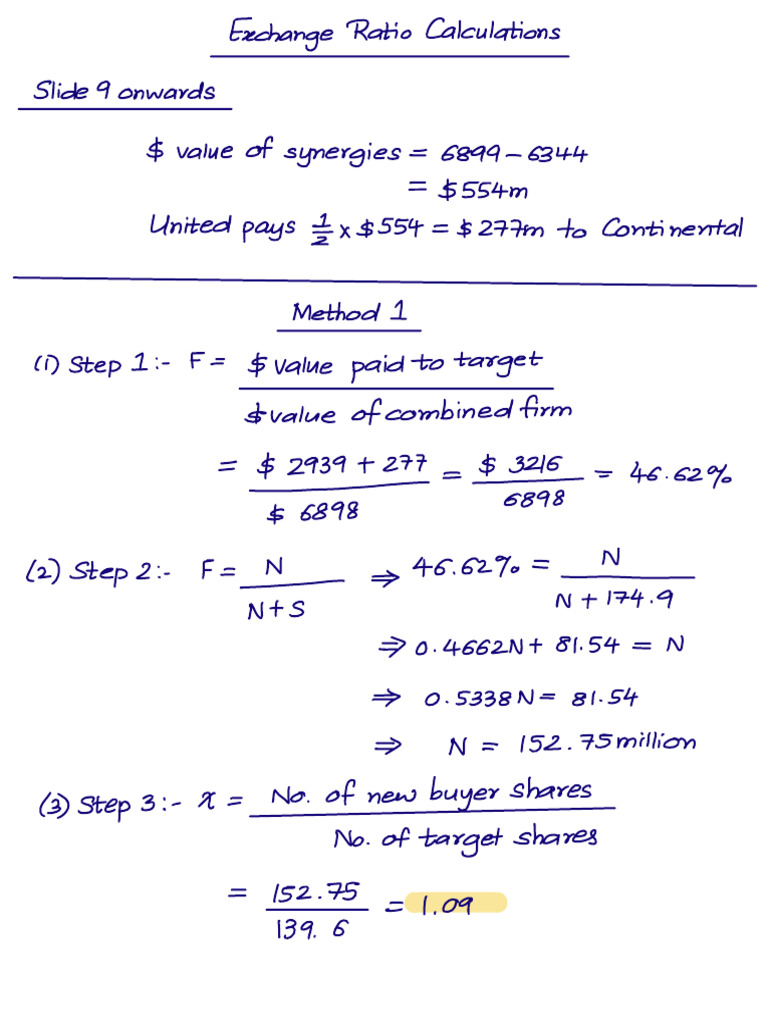 Exchange Ratio Calculations
Slide 9 onwards
$ value of synergies = 6899 - 6344
= $554m
United pays 1/2 x $554 = $277m to Continental
Method 1
(1) Step 1:- F = $ value paid to target / $ value of combined firm
= $ 2939 + 277 / $ 6898 = $ 3216 / 6898 = 46.62%
(2) Step 2:- F = N / N+S ⇒ 46.62% = N / N + 174.9
⇒ 0.4662N + 81.54 = N
⇒ 0.5338N = 81.54
⇒ N = 152.75 million
(3) Step 3:- x = No. of new buyer shares / No. of target shares
= 152.75 / 139.6 = 1.09